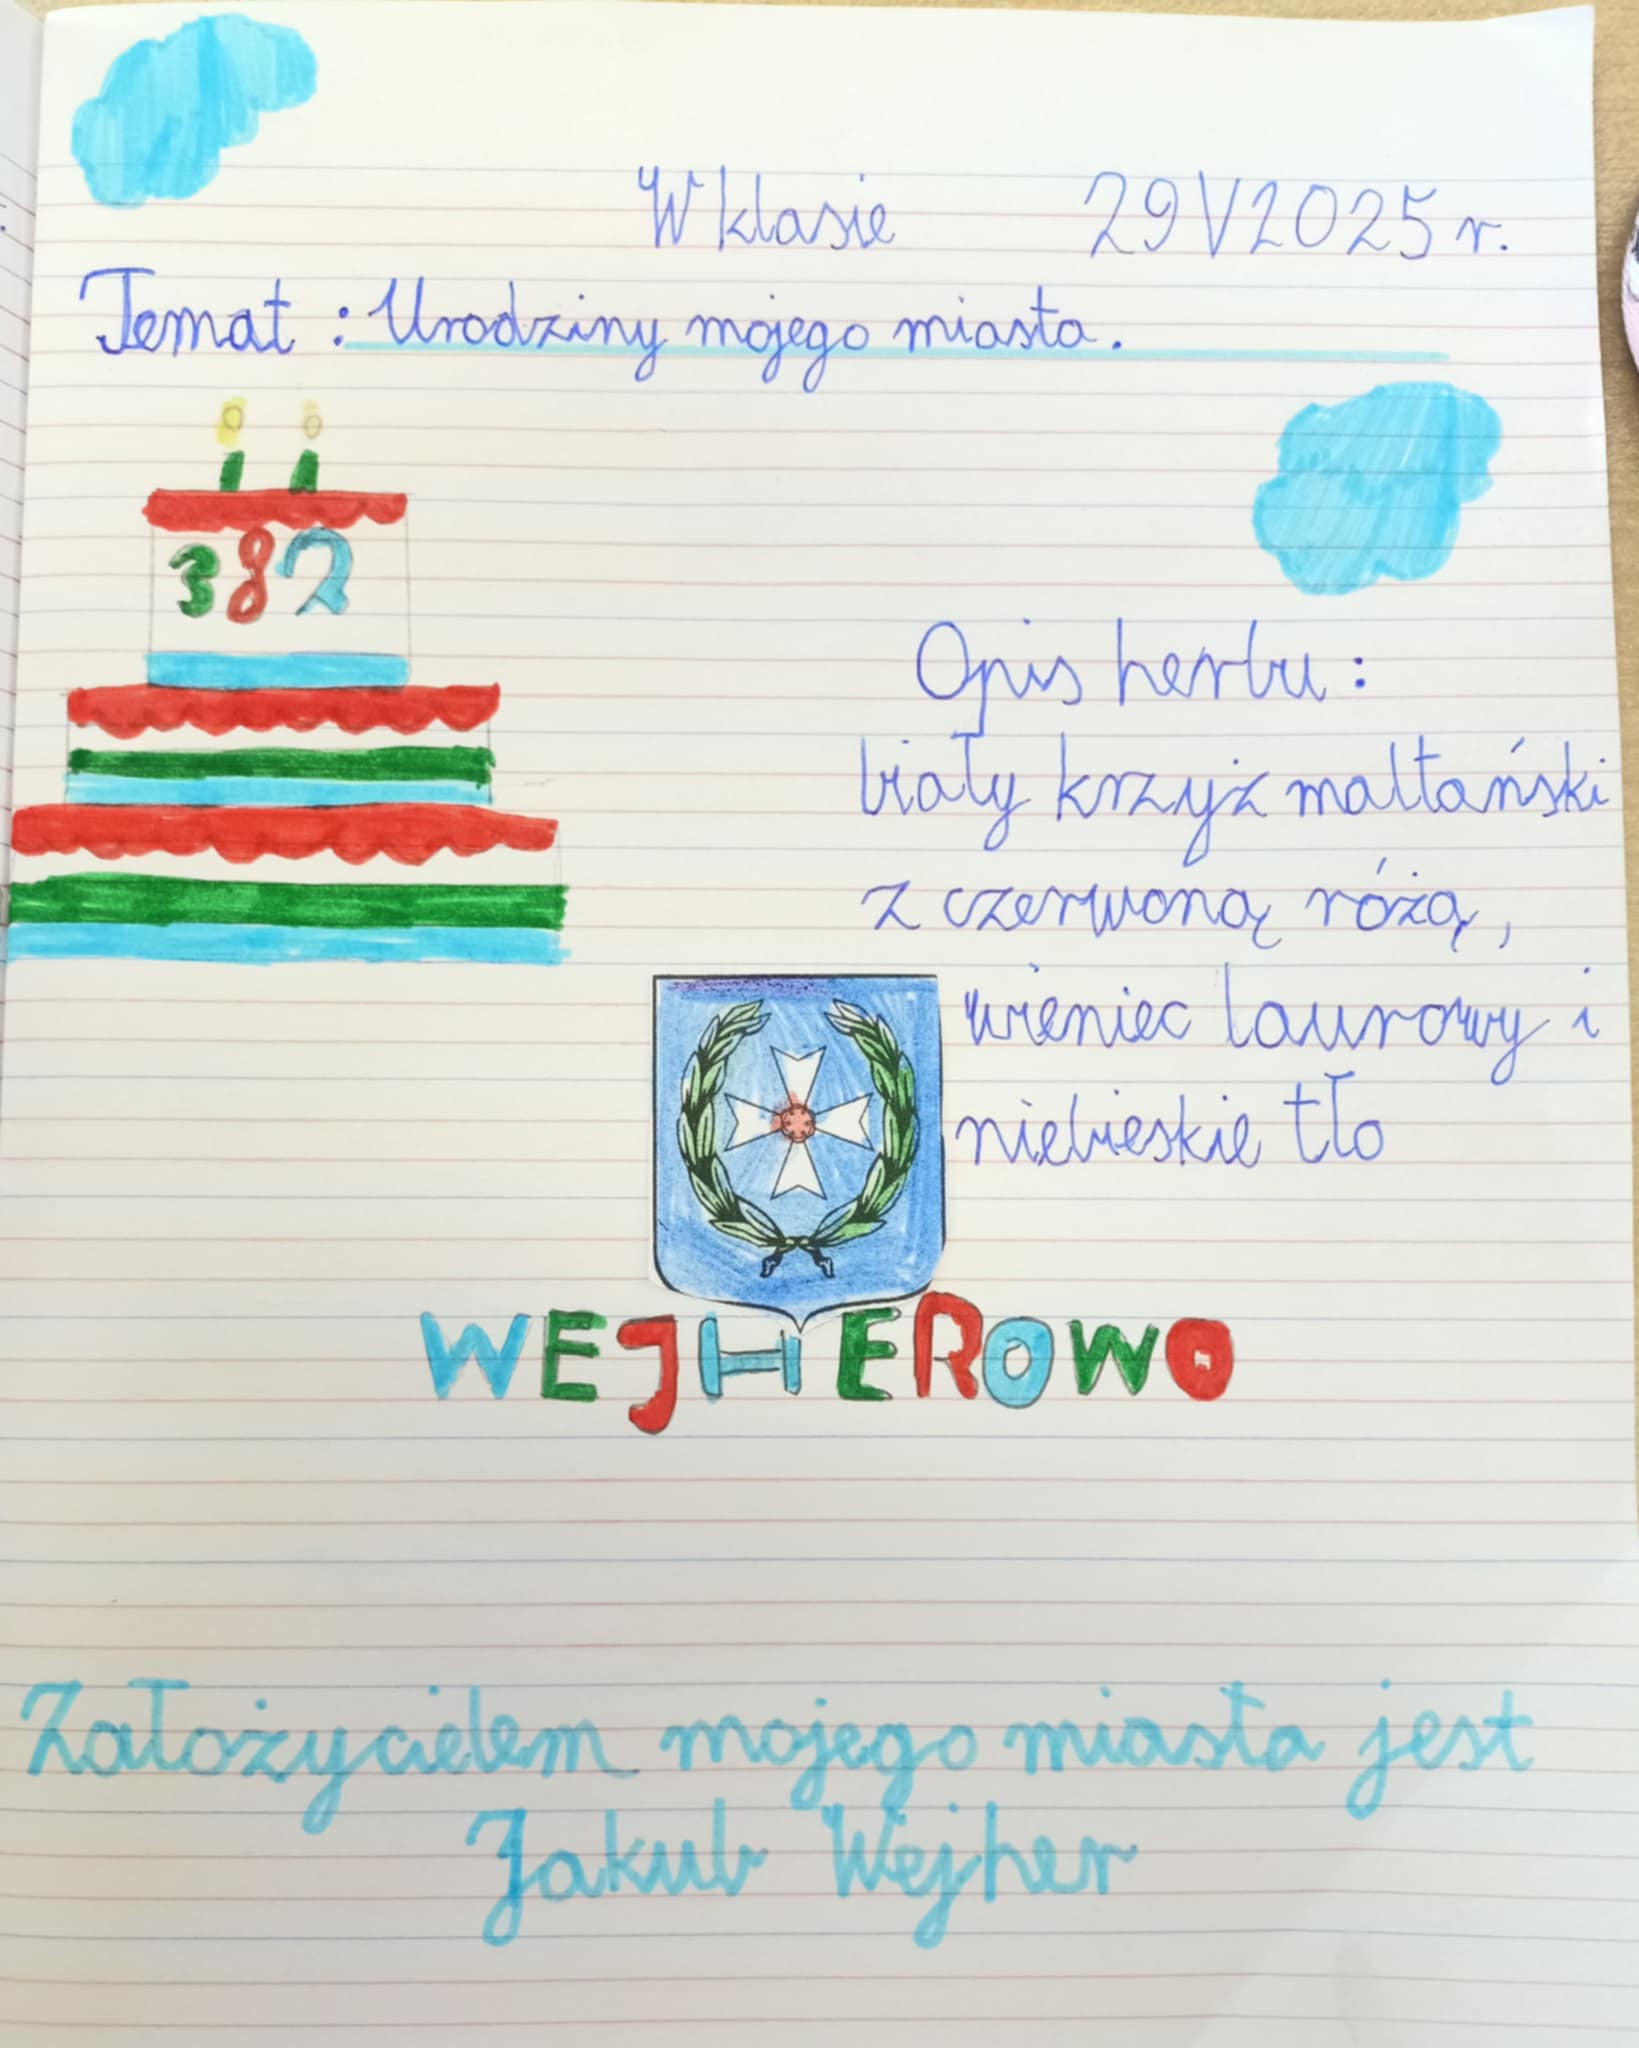 W klasie 29 V 2025 r.
Temat : Urodziny mojego miasta.
382
Opis herbu :
biały krzyż maltański
z czerwoną różą,
wieniec laurowy i
niebieskie tło
WEJHEROWO
Założycielem mojego miasta jest
Jakub Wejher